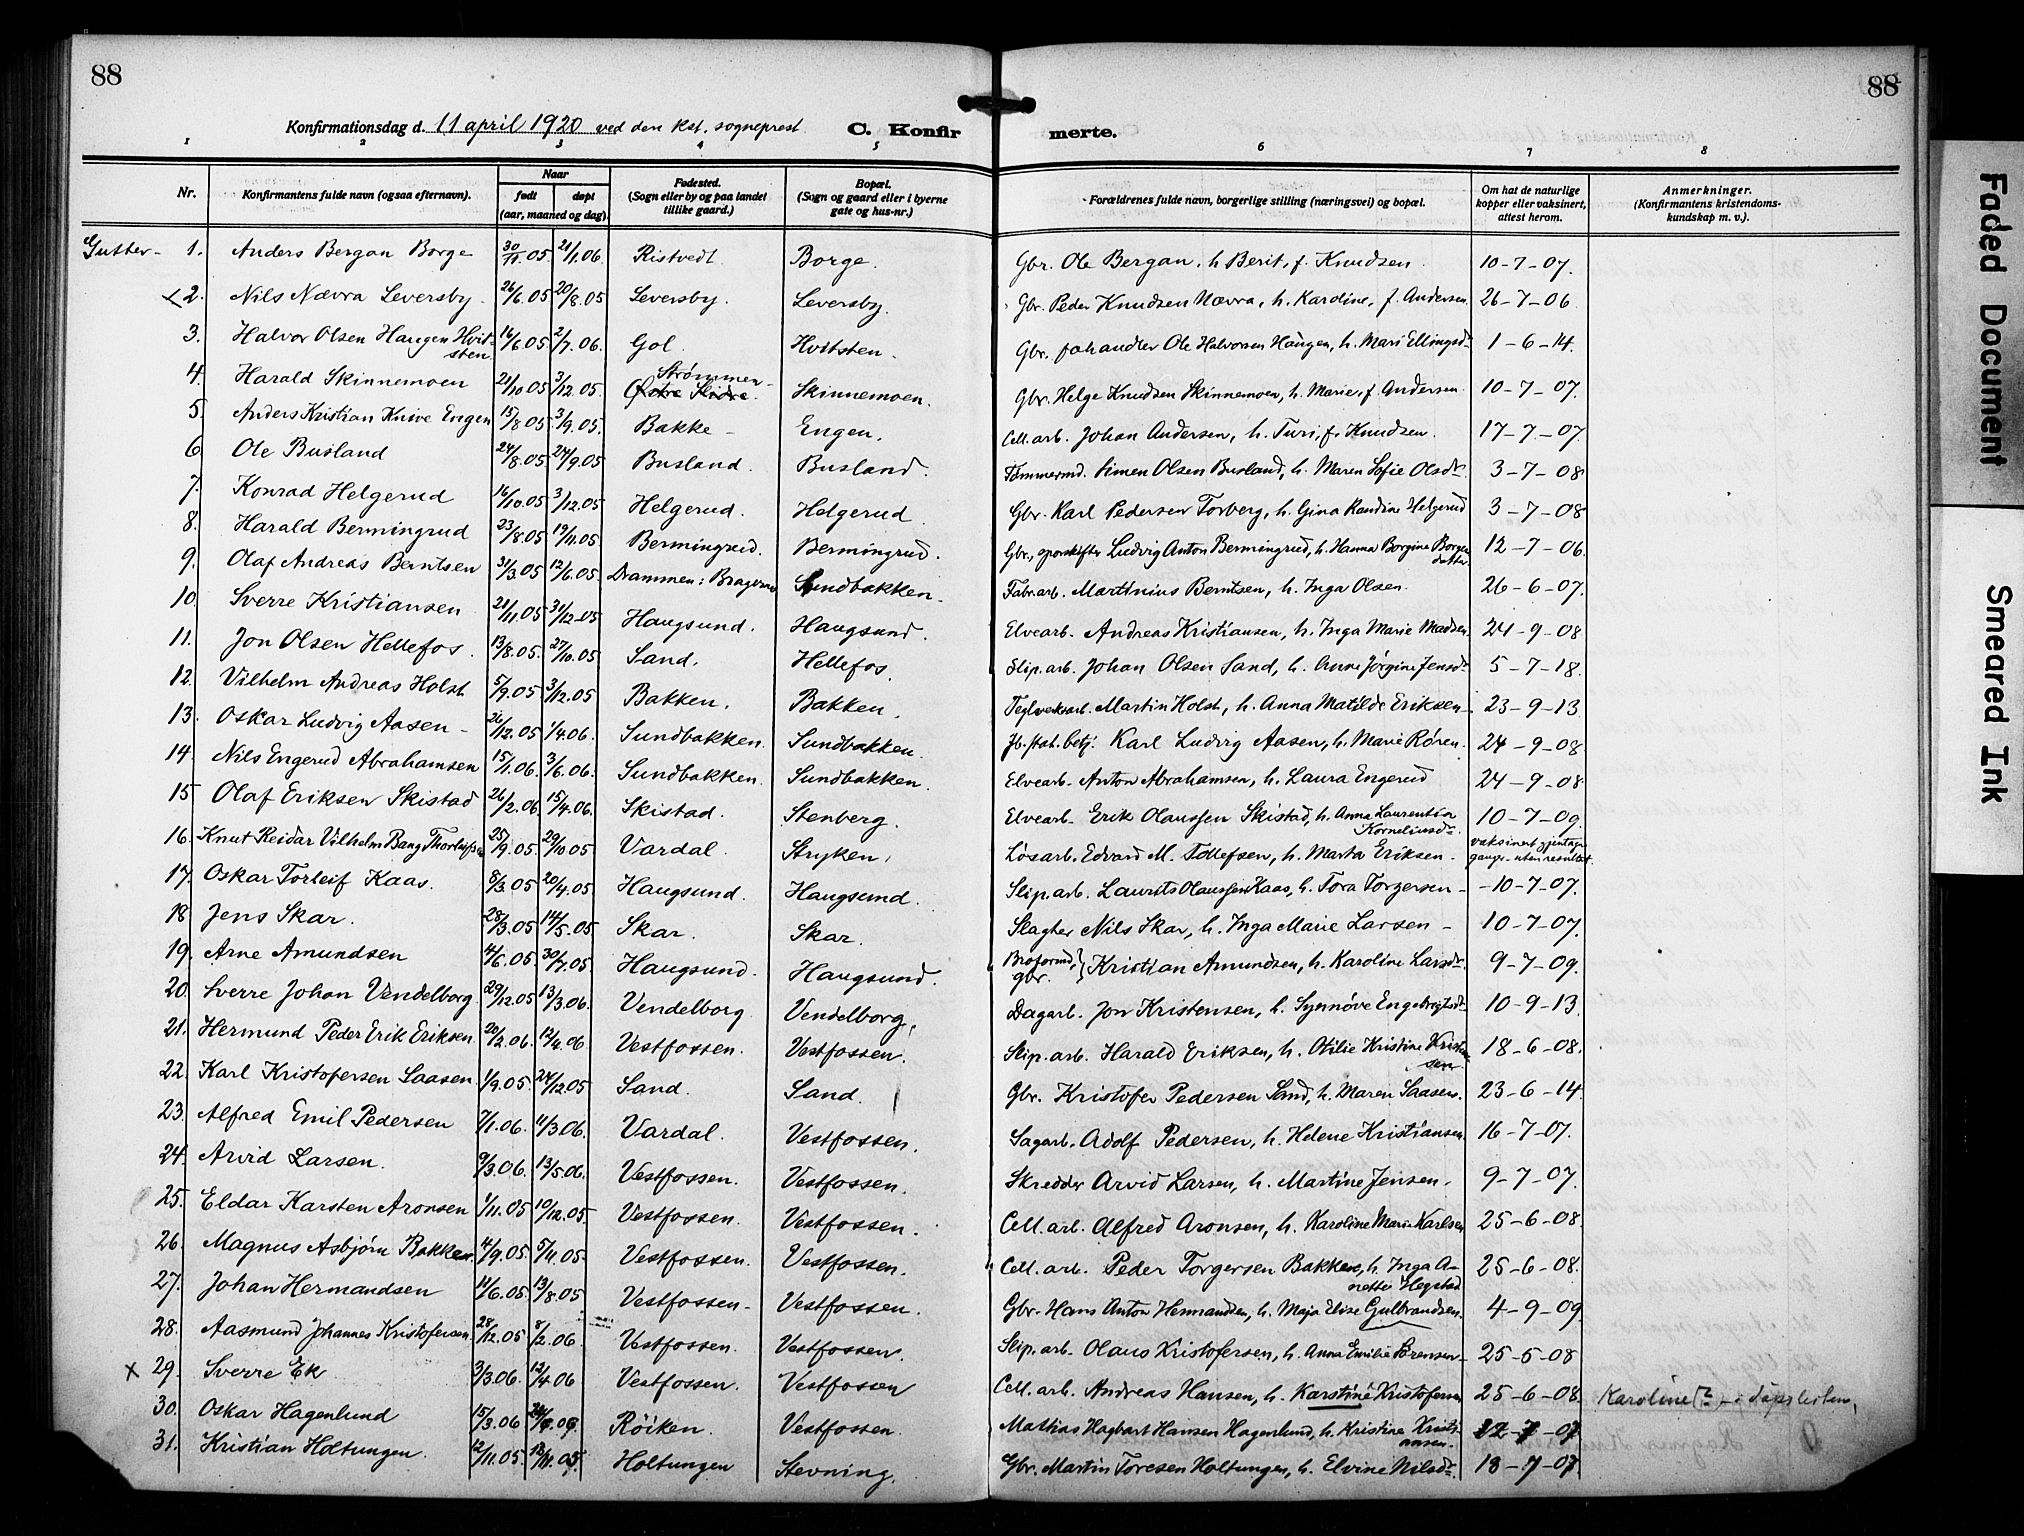 88
88
Konfirmationsdag d. 11 april 1920 ved den kst. sogneprest C. Konfir merte.
1 2 3 4 5 6 7 8
Nr. Konfirmantens fulde navn (ogsaa efternavn). Naar født døpt (aar, maaned og dag) Fødested. (Sogn eller by og paa landet tillike gaard.) Bopæl. (Sogn og gaard eller i byerne gate og hus-nr.) Forældrenes fulde navn, borgerlige stilling (næringsvei) og bopæl. Om hat de naturlige kopper eller vaksinert, attest herom. Anmerkninger. (Konfirmantens kristendoms-kundskap m. v.).
Gutter - 1. Anders Bergan Borge 30/11.05 21/1.06. Ristvedt Borge. Gbr. Ole Bergan, h. Berit, f. Knudsen. 10-7-07.
x 2. Nils Nævra Leversby 26/6.05 20/8.05 Leversby. Leversby. Gbr. Peder Knudsen Nævra, h. Karoline, f. Andersen. 26-7-06
3. Halvor Olsen Haugen Hvitsten 16/6.05 2/7.06. Gol. Hvitsten. Gbr. fehandler Ole Halvorsen Haugen, h. Mari Ellingsdr 1-6-14.
4. Harald Skinnemoen 21/10.05 3/12.05 Strømmen - Østre Slidre. Skinnemoen. Gbr. Helge Knudsen Skinnemoen, h. Marie, f. Andersen. 10-7-07.
5. Anders Kristian Knive Engen 15/8.05 3/9.05. Bakke - Engen. Cell. arb. Johan Andersen, h. Turi, f. Knudsen. 17-7-07.
6. Ole Busland 24/8.05 24/9.05 Busland. Busland. Tømmermd. Simen Olsen Busland, h. Maren Sofie Olsdr. 3-7-08
7. Konrad Helgerud 16/10.05 3/12.05 Helgerud. Helgerud. Gbr. Karl Pedersen Torberg, h. Gina Randine Helgerud 3-7-08
8. Harald Bermingrud 23/8.05 19/11.05 Bermingrud. Bermingrud. Gbr., sporskifter Ludvig Anton Bermingrud, h. Hanna Borgine Borgersdatter 12-7-06.
9. Olaf Andreas Berntsen 31/3.05 12/6.05. Drammen: Bragernes Sundbakken. Fabr. arb. Marthinius Berntsen, h. Inga Olsen. 26-6-07.
10. Sverre Kristiansen 21/11.05 31/12-05 Haugsund. Haugsund. Elvearb. Andreas Kristiansen, h. Inga Marie Madsen 24-9-08
11. Jon Olsen Hellefos. 13/8.05 27/10.05 Sand. Hellefos. Slip. arb. Johan Olsen Sand, h. Anne Jørgine Jensdr 5-7-18.
12. Vilhelm Andreas Holst 5/9.05 3/12.05 Bakken. Bakken. Teglverksarb. Martin Holst, h. Anna Matilde Eriksen - 23-9-13
13. Oskar Ludvig Aasen - 26/12.05 1/4.06. Sundbakken. Sundbakken. Jb. stat. betj. Karl Ludvig Aasen, h. Marie Røren. 24-9-08
14. Nils Engerud Abrahamsen 15/1.06. 3/6.06. Sundbakken. Sundbakken. Elvearb. Anton Abrahamsen, h. Laura Engerud 24-9-08
15. Olaf Eriksen Skistad 26/2.06. 15/4.06. Skistad. Stenberg. Elvearb. Erik Olaussen Skistad, h. Anna Laurentia Korneliusdr 10-7-09.
16. Knut Reidar Vilhelm Bang Thorleifsen 25/9.05 29/10.05 Vardal. Stryken. Løsarb. Edvard M. Tollefsen, h. Marta Eriksen - vaksinert gjentagne gange - uten resultat.
17. Oskar Torleif Kaas. 8/3.05 20/4.05 Haugsund. Haugsund. Slip. arb. Laurits Olaussen Kaas, h. Tora Torgersen - 10-7-07.
18. Jens Skar. 28/3.05 14/5.05 Skar. Skar. Slagter Nils Skar, h. Inga Marie Larsen - 10-7-07.
19. Arne Amundsen 4/6.05 30/7.05 Haugsund. Haugsund. Broformd., gbr. Kristian Amundsen, h. Karoline Larsdr. 9-7-09.
20. Sverre Johan Vendelborg 29/12.05 13/3.06. Vendelborg Vendelborg. Dagarb. Jon Kristensen, h. Synnøve Engebrigtsdr 10-9-13
21. Hermund Peder Erik Eriksen 20/2.06. 12/4.06. Vestfossen. Vestfossen. Slip. arb. Harald Eriksen, h. Otilie Kristine Kristensen. 18-6-08.
22. Karl Kristofersen Saasen 1/9.05. 24/12.05 Sand. Sand. Gbr. Kristofer Pedersen Sand, h. Maren Saasen. 23-6-14
23. Alfred Emil Pedersen 7/1.06. 11/3.06. Vardal. Vestfossen. Sagarb. Adolf Pedersen, h. Helene Kristiansen. 16-7-07.
24. Arvid Larsen. 9/3.06. 13/5.06. Vestfossen. Vestfossen. Skredder Arvid Larsen, h. Martine Jensen. 9-7-07.
25. Eldar Karsten Aronsen 1/11.05 10/12.05. Vestfossen. Vestfossen. Cell. arb. Alfred Aronsen, h. Karoline Marie Karlsen 25-6-08.
26. Magnus Asbjørn Bakken. 4/9.05. 5/11.05 Vestfossen. Vestfossen. Cell. arb. Peder Torgersen Bakken, h. Inga Anette Hegstad 25-6-08.
27. Johan Hermandsen 11/6.05. 13/8.05 Vestfossen - Vestfossen. Gbr. Hans Anton Hermandsen, h. Maja Elise Gulbrandsen. 4-9-09
28. Aasmund Johannes Kristofersen. 28/12.05 8/2.06 Vestfossen. Vestfossen. Slip. arb. Olaus Kristofersen, h. Anna Emilie Sørensen - 25-5-08
x 29. Sverre Ek 2/3.06. 12/4.06 Vestfossen. Vestfossen Cell. arb. Andreas Hansen, h. Karstine Kristofersen 25-6-08. Karoline (?) - i dåpslisten.
30. Oskar Hagenlund 15/3.06 Røiken. Vestfossen. Mathias Hagbart Hansen Hagenlund, h. Kristine Kristiansen. 22-7-07
31. Kristian Holtungen. 12/11.05. Holtungen Stevning. Gbr. Martin Toresen Holtungen, h. Elvine Nilsdr. 18-7-07.
Faded Document
Smeared Ink